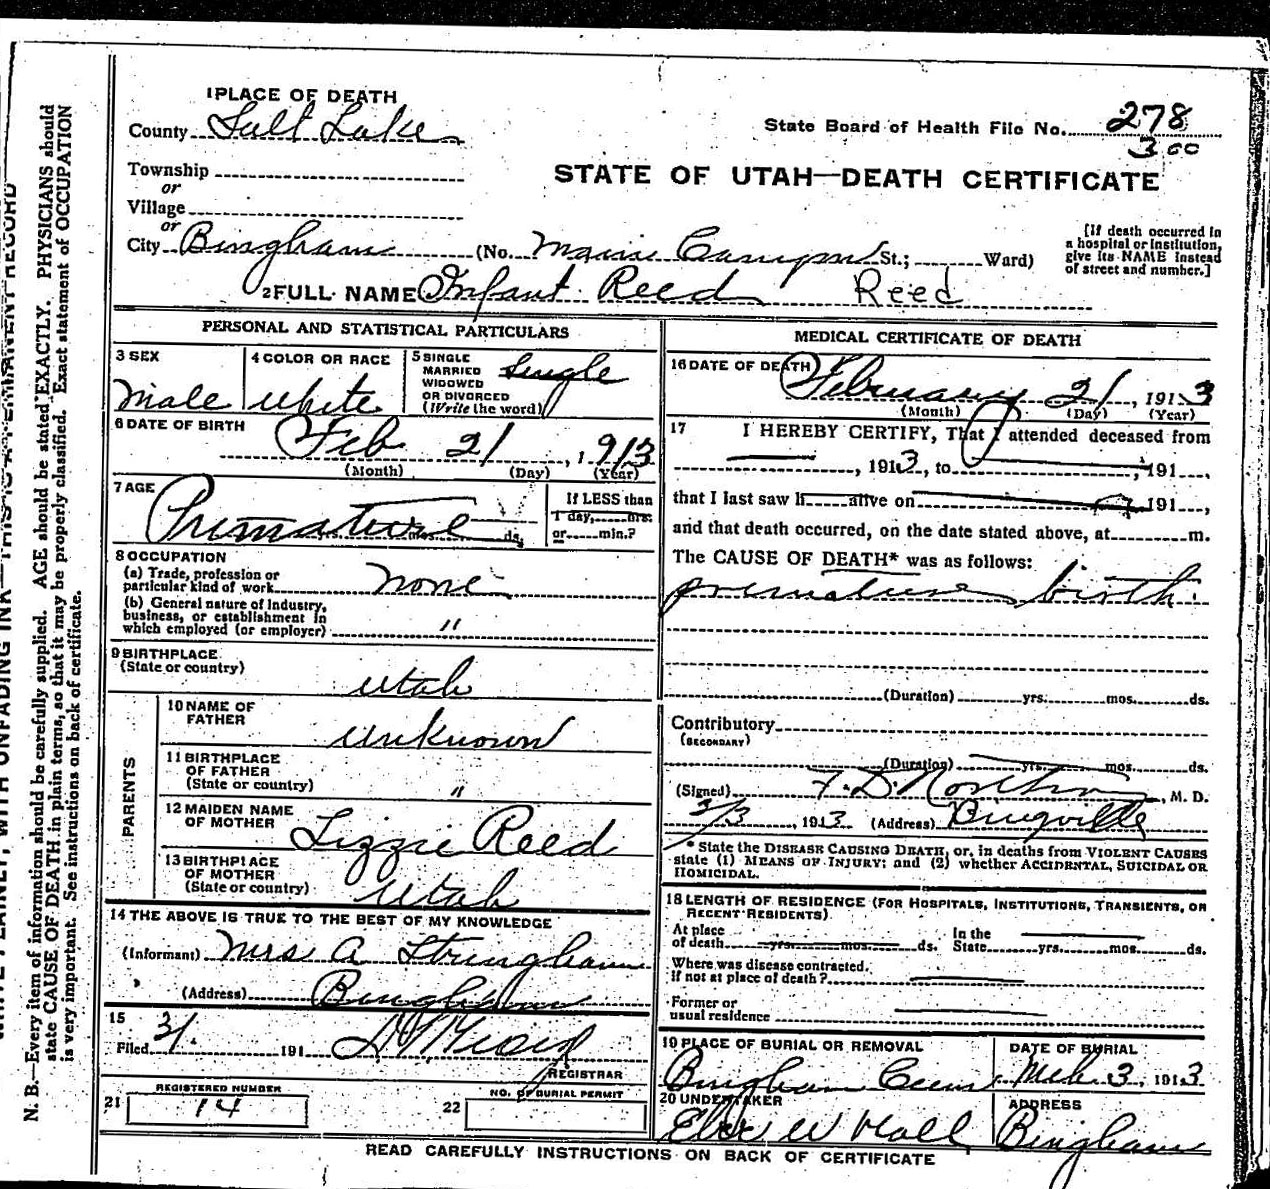 1 PLACE OF DEATH
County Salt Lake
State Board of Health File No. 278
300
Township
or
Village
or
STATE OF UTAH—DEATH CERTIFICATE
City Bingham (No. Main Canyon St.; Ward)
[If death occurred in a hospital or institution, give its NAME instead of street and number.]
2 FULL NAME Infant Reed Reed
PERSONAL AND STATISTICAL PARTICULARS
3 SEX
Male
4 COLOR OR RACE
white
5 SINGLE
MARRIED
WIDOWED
OR DIVORCED
(Write the word)
Single
6 DATE OF BIRTH
Feb 21, 1913
(Month) (Day) (Year)
7 AGE
Premature
ds.
If LESS than
1 day, hrs.
or min.?
8 OCCUPATION
(a) Trade, profession or
particular kind of work none
(b) General nature of Industry,
business, or establishment in
which employed (or employer) "
9 BIRTHPLACE
(State or country)
Utah
PARENTS
10 NAME OF
FATHER
unknown
11 BIRTHPLACE
OF FATHER
(State or country) "
12 MAIDEN NAME
OF MOTHER
Lizzie Reed
13 BIRTHPLACE
OF MOTHER
(State or country)
Utah
14 THE ABOVE IS TRUE TO THE BEST OF MY KNOWLEDGE
(Informant) Mrs A Stringham
(Address) Bingham
15
Filed 3/1 191
REGISTRAR
REGISTERED NUMBER
21 14
NO. OF BURIAL PERMIT
22
MEDICAL CERTIFICATE OF DEATH
16 DATE OF DEATH
February 21, 1913
(Month) (Day) (Year)
17 I HEREBY CERTIFY, That I attended deceased from
, 1913, to 191 ,
that I last saw h alive on 191 ,
and that death occurred, on the date stated above, at m.
The CAUSE OF DEATH* was as follows:
premature birth.
(Duration) yrs. mos. ds.
Contributory
(SECONDARY)
(Duration) yrs. mos. ds.
(Signed) F. D. , M. D.
3/3, 1913 (Address) Bingville
* State the DISEASE CAUSING DEATH, or, in deaths from VIOLENT CAUSES
state (1) MEANS OF INJURY; and (2) whether ACCIDENTAL, SUICIDAL OR
HOMICIDAL.
18 LENGTH OF RESIDENCE (FOR HOSPITALS, INSTITUTIONS, TRANSIENTS, OR
RECENT RESIDENTS)
At place
of death yrs. mos. ds.
In the
State yrs. mos. ds.
Where was disease contracted.
If not at place of death?
Former or
usual residence
19 PLACE OF BURIAL OR REMOVAL
Bingham Cem.
DATE OF BURIAL
Mch 3, 1913
20 UNDERTAKER
W Hall
ADDRESS
Bingham
READ CAREFULLY INSTRUCTIONS ON BACK OF CERTIFICATE
N. B.—Every item of information should be carefully supplied. AGE should be stated EXACTLY. PHYSICIANS should
state CAUSE OF DEATH in plain terms, so that it may be properly classified. Exact statement of OCCUPATION
is very important. See instructions on back of certificate.